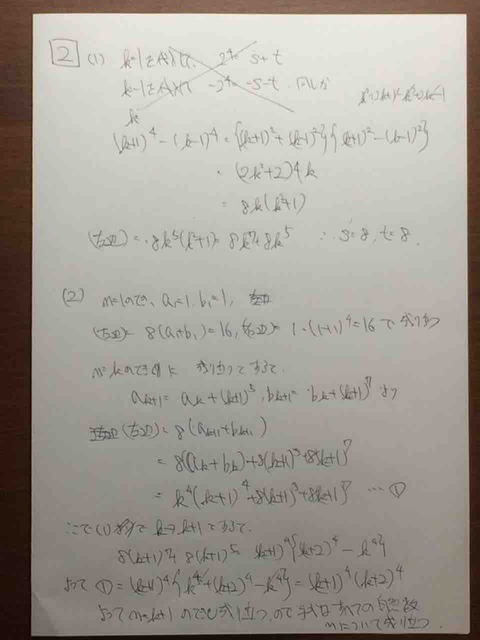 2 (1) k=1を代入して、2^4 = s+t
k=-1を代入して -2^4 = -s-t 同じか
k
k²+2k+1 - k²+2k-1
(k+1)^4 - (k-1)^4 = {(k+1)²+(k-1)²}{(k+1)²-(k-1)²}
= (2k²+2)4k
= 8k(k²+1)
(左辺) = 8k^5(k²+1) = 8k^7+8k^5 ∴ s=8, t=8
(2) n=1のとき、a₁=1, b₁=1, 左辺
(左辺) = 8(a₁+b₁)=16, (右辺) = 1・(1+1)^4=16 で成り立つ
n=kのとき 成り立つとすると、
a_{k+1} = a_k+(k+1)^5, b_{k+1} = b_k+(k+1)^7 より
(左辺) = 8(a_{k+1}+b_{k+1})
= 8(a_k+b_k)+8(k+1)^5+8(k+1)^7
= k^4(k+1)^4+8(k+1)^5+8(k+1)^7 …①
ここで(1) で k→k+1とすると、
8(k+1)^7+8(k+1)^5 = (k+1)^4{(k+2)^4-k^4}
よって ① = (k+1)^4{k^4+(k+2)^4-k^4} = (k+1)^4(k+2)^4
よってn=k+1のときも成り立つので すべての自然数
nについて成り立つ。